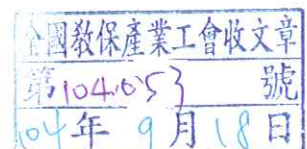 全國教保產業工會收文章
第104053號
104年9月18日